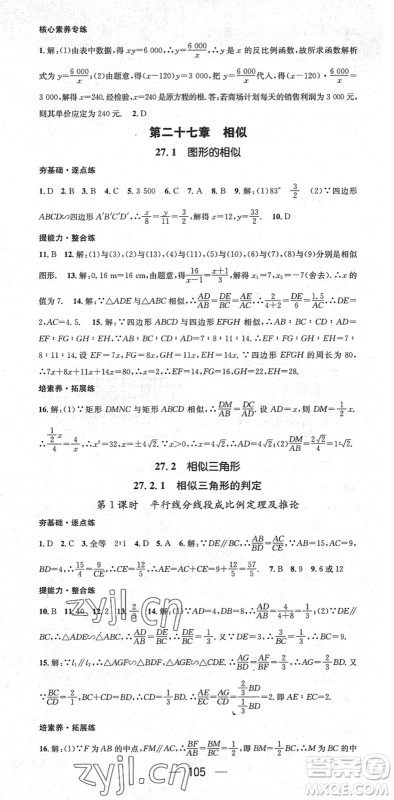 核心素养专练
1.解:(1)由表中数据,得xy=6 000,∴y=6 000/x,∴y是x的反比例函数,故所求函数解析
式为y=6 000/x;(2)由题意,得(x−120)y=3 000,把y=6 000/x代入,得(x−120)·6 000/x=
3 000,解得x=240.经检验,x=240是原方程的根.答:若商场计划每天的销售利润为3 000元,则
其单价应定为240元. 2.D
第二十七章 相似
27.1 图形的相似
夯基础·逐点练
1.D 2.B 3.A 4.B 5.3 500 6.C 7.B 8.C 9.解:(1)83° 3/2 (2)∵四边形
ABCD∽四边形A′B′C′D′,∴x/8=y/11=3/2,解得x=12,y=33/2. 10.D
提能力·整合练
11.B 12.解:(1)与(3),(2)与(13),(5)与(10),(6)与(11),(7)与(12),(8)与(9)分别是相似
图形. 13.解:0.16 m=16 cm,由题意,得16/(x+1)=(x+1)/4,解得x₁=7,x₂=−9(舍去).∴x的
值为7. 14.解:∵△ADE与△ABC相似,∴AD/AB=DE/BC=AE/AC,即2/(4+2)=DE/6=1.5/AC,∴DE=
2,AC=4.5. 15.解:∵四边形ABCD与四边形EFGH相似,∴AB∶BC∶CD∶AD=
EF∶FG∶GH∶EH.∵AB∶BC∶CD∶AD=7∶8∶11∶14,∴EF∶FG∶GH∶EH=7∶
8∶11∶14.∴7x+8x+11x+14x=80.∴x=2.∴EF=14,FG=16,GH=22,EH=28.
培素养·拓展练
16.解:(1)∵矩形DMNC与矩形ABCD相似,∴DM/AB=DC/AD.∵DM=1/2AD,AB=DC=4,
∴(1/2x)/4=4/x,∴x²=32,x=±4√2.∵x>0,∴x=4√2.∴AD=4√2;(2)DM/AB=2√2/4=√2/2.
27.2 相似三角形
27.2.1 相似三角形的判定
第1课时 平行线分线段成比例定理及推论
夯基础·逐点练
1.D 2.C 3.全等 2∶1 4.D 5.A 6.解:∵DE∥BC,∴AB/BD=AC/CE.∵AB=15,AC=9,BD
=4,∴15/4=9/CE,∴CE=12/5. 7.B 8.9 9.6或12
提能力·整合练
10.B 11.40 12.2 13.2/3 14.解:∵DE∥BC,∴△ADE∽△ABC,∴AD/AB=DE/BC=AE/AC.
∵AD/AB=4/(4+8)=1/3,∴DE/BC=1/3.又∵DE=3,∴3/BC=1/3,∴BC=9.
15.解:∵l₁∥l₂,∴△AGF∽△BDF,△AGE∽△CDE,∴AG/BD=AF/BF=2/3,∴AG=2/3BD.
∵BC/CD=2/1,∴BC+CD=3CD=BD,∴CD=1/3BD,∴AE/EC=AG/CD=(2/3BD)/(1/3BD)=2.
核素养·拓展练
16.解:∵M为AB的中点,FM∥AC,∴BM/BA=1/2,即BM=1/2BA.又∵BM/BA=BF/BC,即BF=1/2BC,
105
zyjl.cn
答案